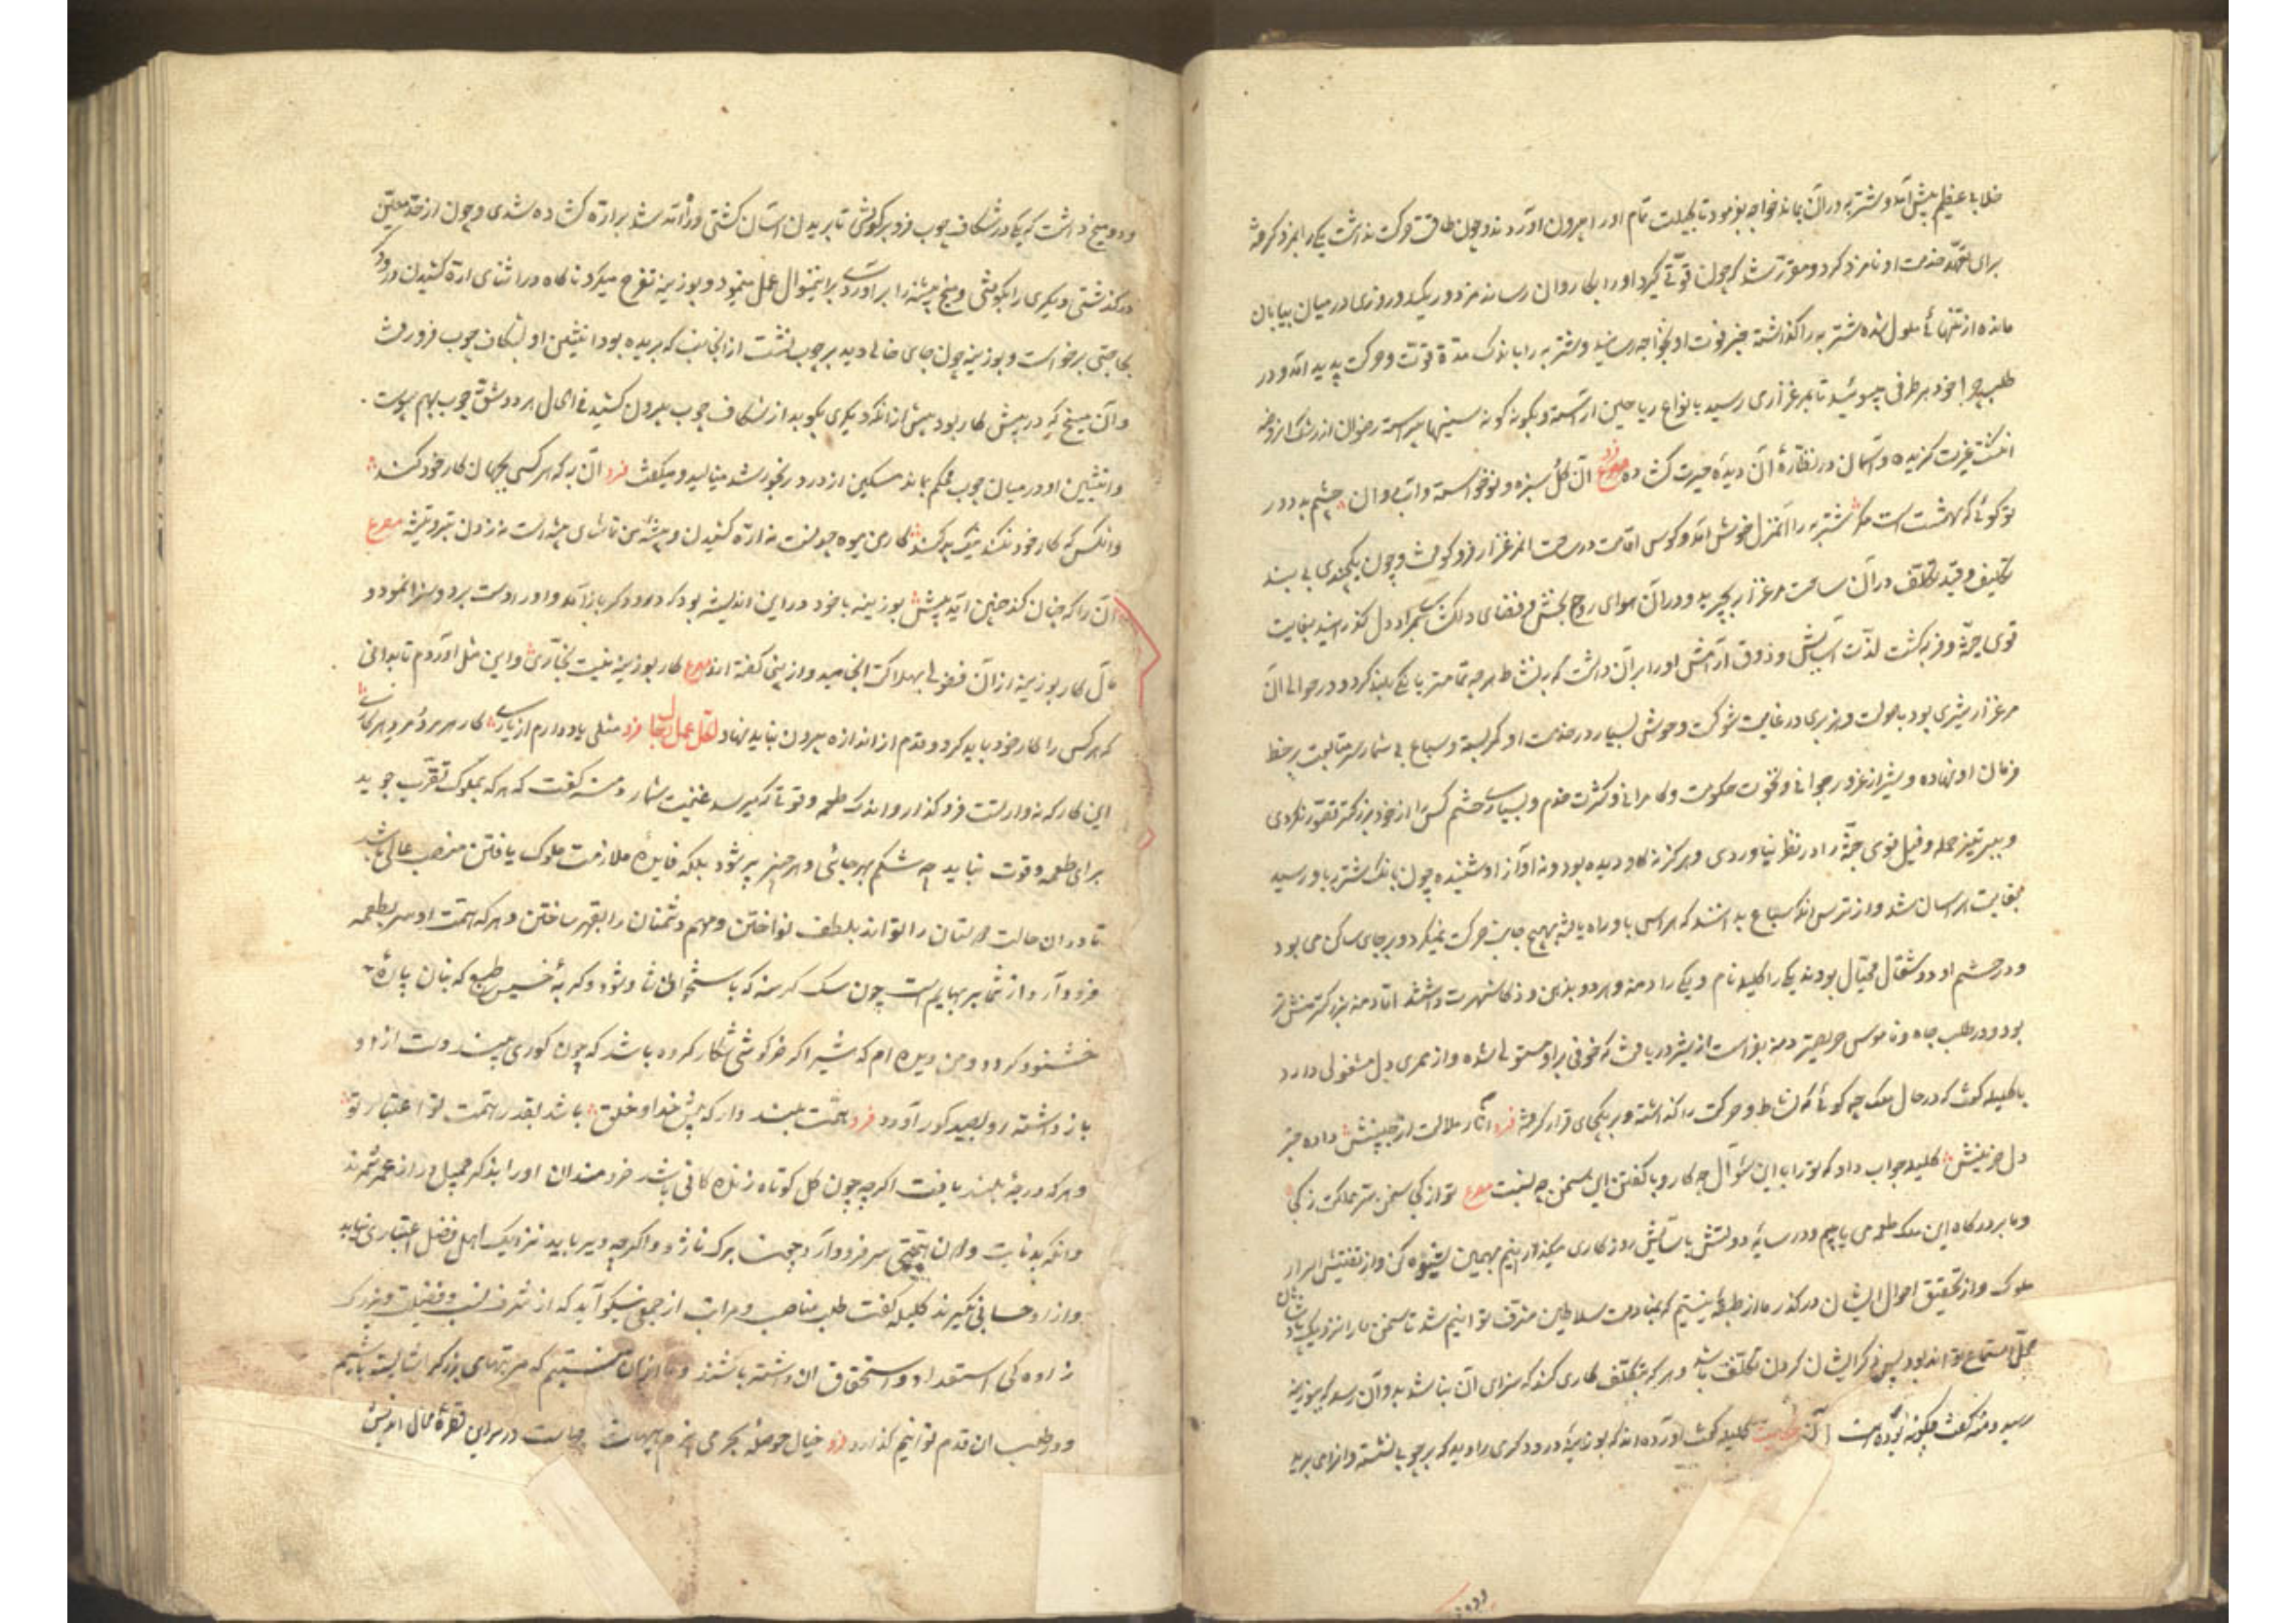 خلابی عظیم پیش آمد و شتربه در آن بماند خواجه بفرمود تا بحیلت تمام او را بیرون آوردند و چون طاقت حرکت نداشت یکی را بمزد گرفته
برای تعهد خدمت او نامزد کرد و مقرر شد که چون قوتی گیرد او را بکاروان رساند مزدور یک دو روزی در میان بیابان
مانده از تنهائی ملول شده شتربه را گذاشته خبر فوت او بخواجه رسانید و شتربه را باندک مدة قوت و حرکت پدید آمد و در
طلب چرا خود هر طرفی میپوئید تا بمرغزاری رسید بانواع ریاحین آراسته و بگونه گونه پیراسته رضوان از رشک آن روضه
انگشت غیرت گزیده و آسمان در نظارهٔ آن دیدهٔ حیرت گشاده مصرع آن گل سبزه و نوخواسته و آب روان چشم بد دور
تو گوئی که بهشت است مگر شتربه را آن منزل خوش آمد و کوس اقامت در ساحت آن مرغزار فرو کوفت و چون یکچندی بی بند
تکلیف و قید تکلف در آن ساحت مرغزار بچرید و در آن هوای روح بخش و فضای دلکش بمراد دل گذرانید بغایت
قوی جثه و فربه گشت لذت آسایش و ذوق آرامش او را بر آن داشت که بنشاط هر چه تمامتر بانگی بلند کرد و در حوالی آن
مرغزار شیری بود با صولت و هزبری در غایت شوکت وحوش بسیار در خدمت او کمر بسته و سباع بی شمار سر متابعت بر خط
فرمان او نهاده و شیر از غرور جوانی و نخوت حکومت و کامرانی و کثرت خدم و بسیاری حشم کسی را از خود بزرگتر تصور نکردی
و ببر تیز حمله و فیل قوی جثه را در نظر نیاوردی و هرگز نه گاو دیده بود و نه آواز او شنیده چون بانگ شتربه باو رسید
بغایت هراسان شد و از ترس آنکه سباع بدانند که هراس باو راه یافته بهیچ جانب حرکت نمیکرد و بر جای ساکن می بود
و در حشم او دو شغال محتال بودند یکی را کلیله نام و یکی را دمنه و هر دو بذهن و ذکا شهرت داشتند اما دمنه بزرگ منش تر
بود و در طلب جاه و ناموس حریصتر دمنه بفراست از شیر دریافت که خوفی بر او مستولی شده و از ممری دل مشغولی دارد
با کلیله گفت که در حال ملک چه گوئی که نشاط و حرکت را گذاشته و بر یکجای قرار گرفته فرد آثار ملالت از جبینش داده خبر
دل حزینش کلیله جواب داد که ترا با این سؤال چه کار و با گفتن این سخن چه نسبت مصرع تو از کجا سخن سر مملکت ز کجا
و ما بر درگاه این ملک طعمه می یابیم و در سایهٔ دولتش بآسایش روزگاری میگذرانیم بهمین بسنده کن و از تفتیش اسرار
ملوک و از تحقیق احوال ایشان در گذر ما از آن طبقه نیستیم که بمنادمت سلاطین مشرف توانیم شد تا سخن ما را نزدیک پادشاهان
محل استماع تواند بود پس ذکر ایشان کردن تکلف باشد و هر که بتکلف کاری کند که سزای آن نباشد بدو آن رسد که ببوزینه
رسید دمنه گفت چگونه بوده است آن حکایت کلیله گفت آورده اند که بوزینهٔ درودگری را دید که بر چوبی نشسته و آنرا می برید
و دو میخ داشت که یکی در شکاف چوب فرو کوفتی تا بریدن آسان گشتی و راه آمد شد بر ارّه گشاده شدی و چون از حد معین
در گذشتی دیگری را بکوفتی و میخ پیشینه را بر آوردی برین منوال عمل مینمود و بوزینه تفرج میکرد ناگاه در اثنای ارّه کشیدن درودگر
بحاجتی برخواست و بوزینه چون جای خالی دید بر چوب نشست از آنجانب که بریده بود انثیین او بشکاف چوب فرو رفت
و آن میخ که در پیش کار بود پیش از آنکه دیگری بکوبد از شکاف چوب بیرون کشید فی الحال هر دو شق چوب بهم پیوست
و انثیین او در میان چوب محکم بماند مسکین از درد رنجور شد مینالید و میگفت فرد آن به که هر کسی بجهان کار خود کند
و آنکس که کار خود نکند نیک بد کند کار من میوه چیدنست نه ارّه کشیدن و پیشهٔ من تماشای بیشه است نه زدن تبر و تیشه مصرع
آن را که چنان کند چنین آید پیش بوزینه با خود در این اندیشه بود که درودگر باز آمد و او را دست برد و سزا نمود و
مآل کار بوزینه از آن فضولی بهلاکت انجامید و از ینجا گفته اند مصرع کار بوزینه نیست نجاری و این مثل آوردم تا بدانی
که هر کس را کار خود باید کرد و قدم از اندازه بیرون نباید نهاد لکل عمل رجال فرد مثلی یاد دارم از یاری کار هر مرد و مرد هر کاری
این کار که نه کار تست فرو گذار و اندک طعمه و قوتی که میرسد غنیمت شمار دمنه گفت که هر که بملوک تقرب جوید
برای طعمه و قوت نباید چه شکم بهر جائی و هر چیز پر شود بلکه فایدهٔ ملازمت ملوک یافتن منصب عالی باشد
تا در آن حالت دوستان را تواند بلطف نواختن و مهم دشمنان را بقهر ساختن و هر که همت او سر بطعمه
فرود آرد از شمار بهایم است چون سگ گرسنه که باستخوانی شاد شود و گربهٔ خسیس طبع که بنان پارهٔ
خشنود گردد و من دیده ام که شیر اگر خرگوشی شکار کرده باشد که چون گوری بیند دست از او
باز داشته رو بصید گور آورد فرد همت بلند دار که پیش خدا و خلق باشد بقدر همت تو اعتبار تو
و هر که درجهٔ بلند یافت اگر چه چون گل کوتاه زندگانی باشد خردمندان او را بذکر جمیل دراز عمر شمرند
و آنکه بدنائت و دون همتی سر فرود آرد چون برگ ناژو اگر چه دیر بپاید نزدیک اهل فضل اعتباری نیابد
و از او حسابی نگیرند کلیله گفت طلب مناصب و مراتب از جمعی نیکو آید که از شرف نسب و فضیلت و بزرگ
زادگی استعداد و استحقاق آن داشته باشند و ما از آن نیستیم که مرتبهای بزرگ را شایسته باشیم
و در طلب آن قدم توانیم گذارد فرد خیال حوصلهٔ بحر می پزم هیهات چهاست در سر این قطرهٔ محال اندیش